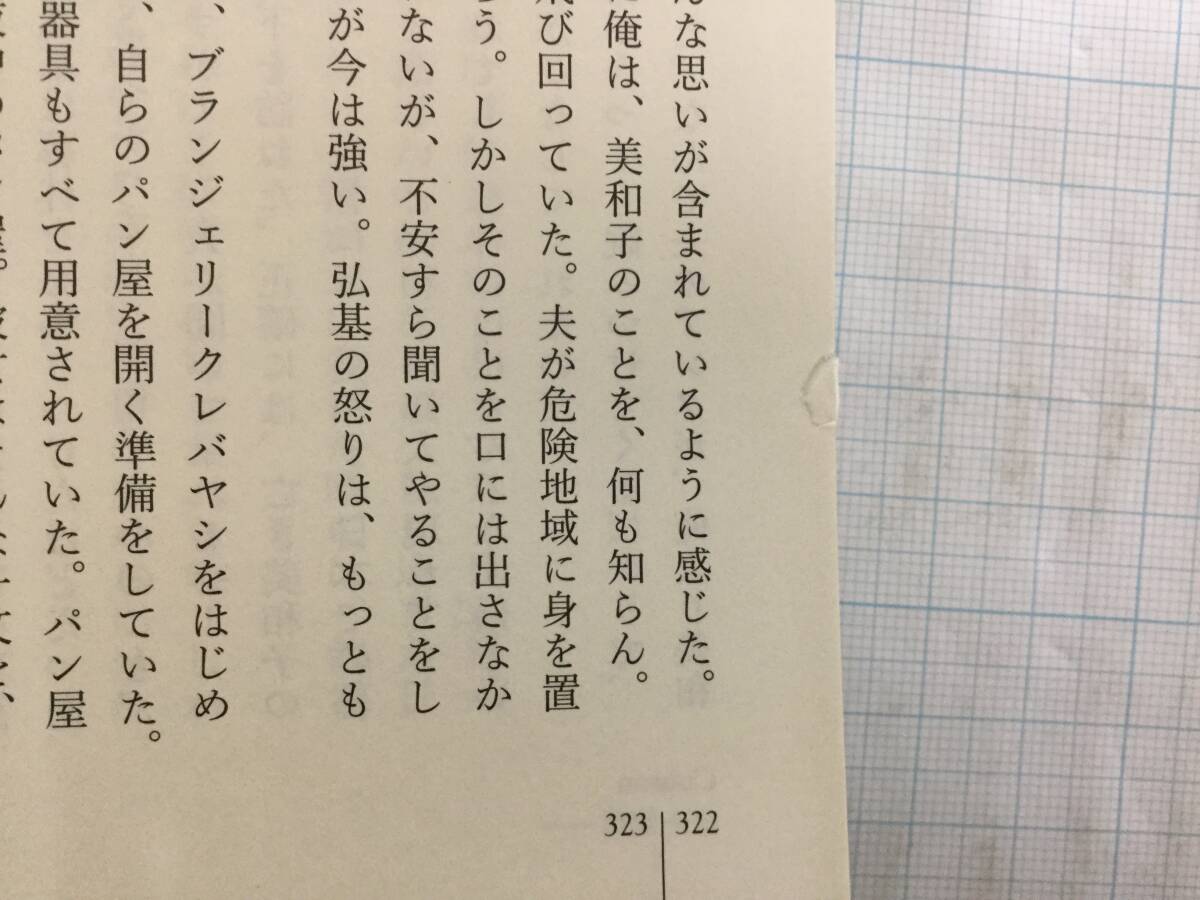 んな思いが含まれているように感じた。
俺は、美和子のことを、何も知らん。
び回っていた。夫が危険地域に身を置
う。しかしそのことを口には出さなか
ないが、不安すら聞いてやることをし
が今は強い。弘基の怒りは、もっとも
、ブランジェリークレバヤシをはじめ
、自らのパン屋を開く準備をしていた。
器具もすべて用意されていた。パン屋
323
322